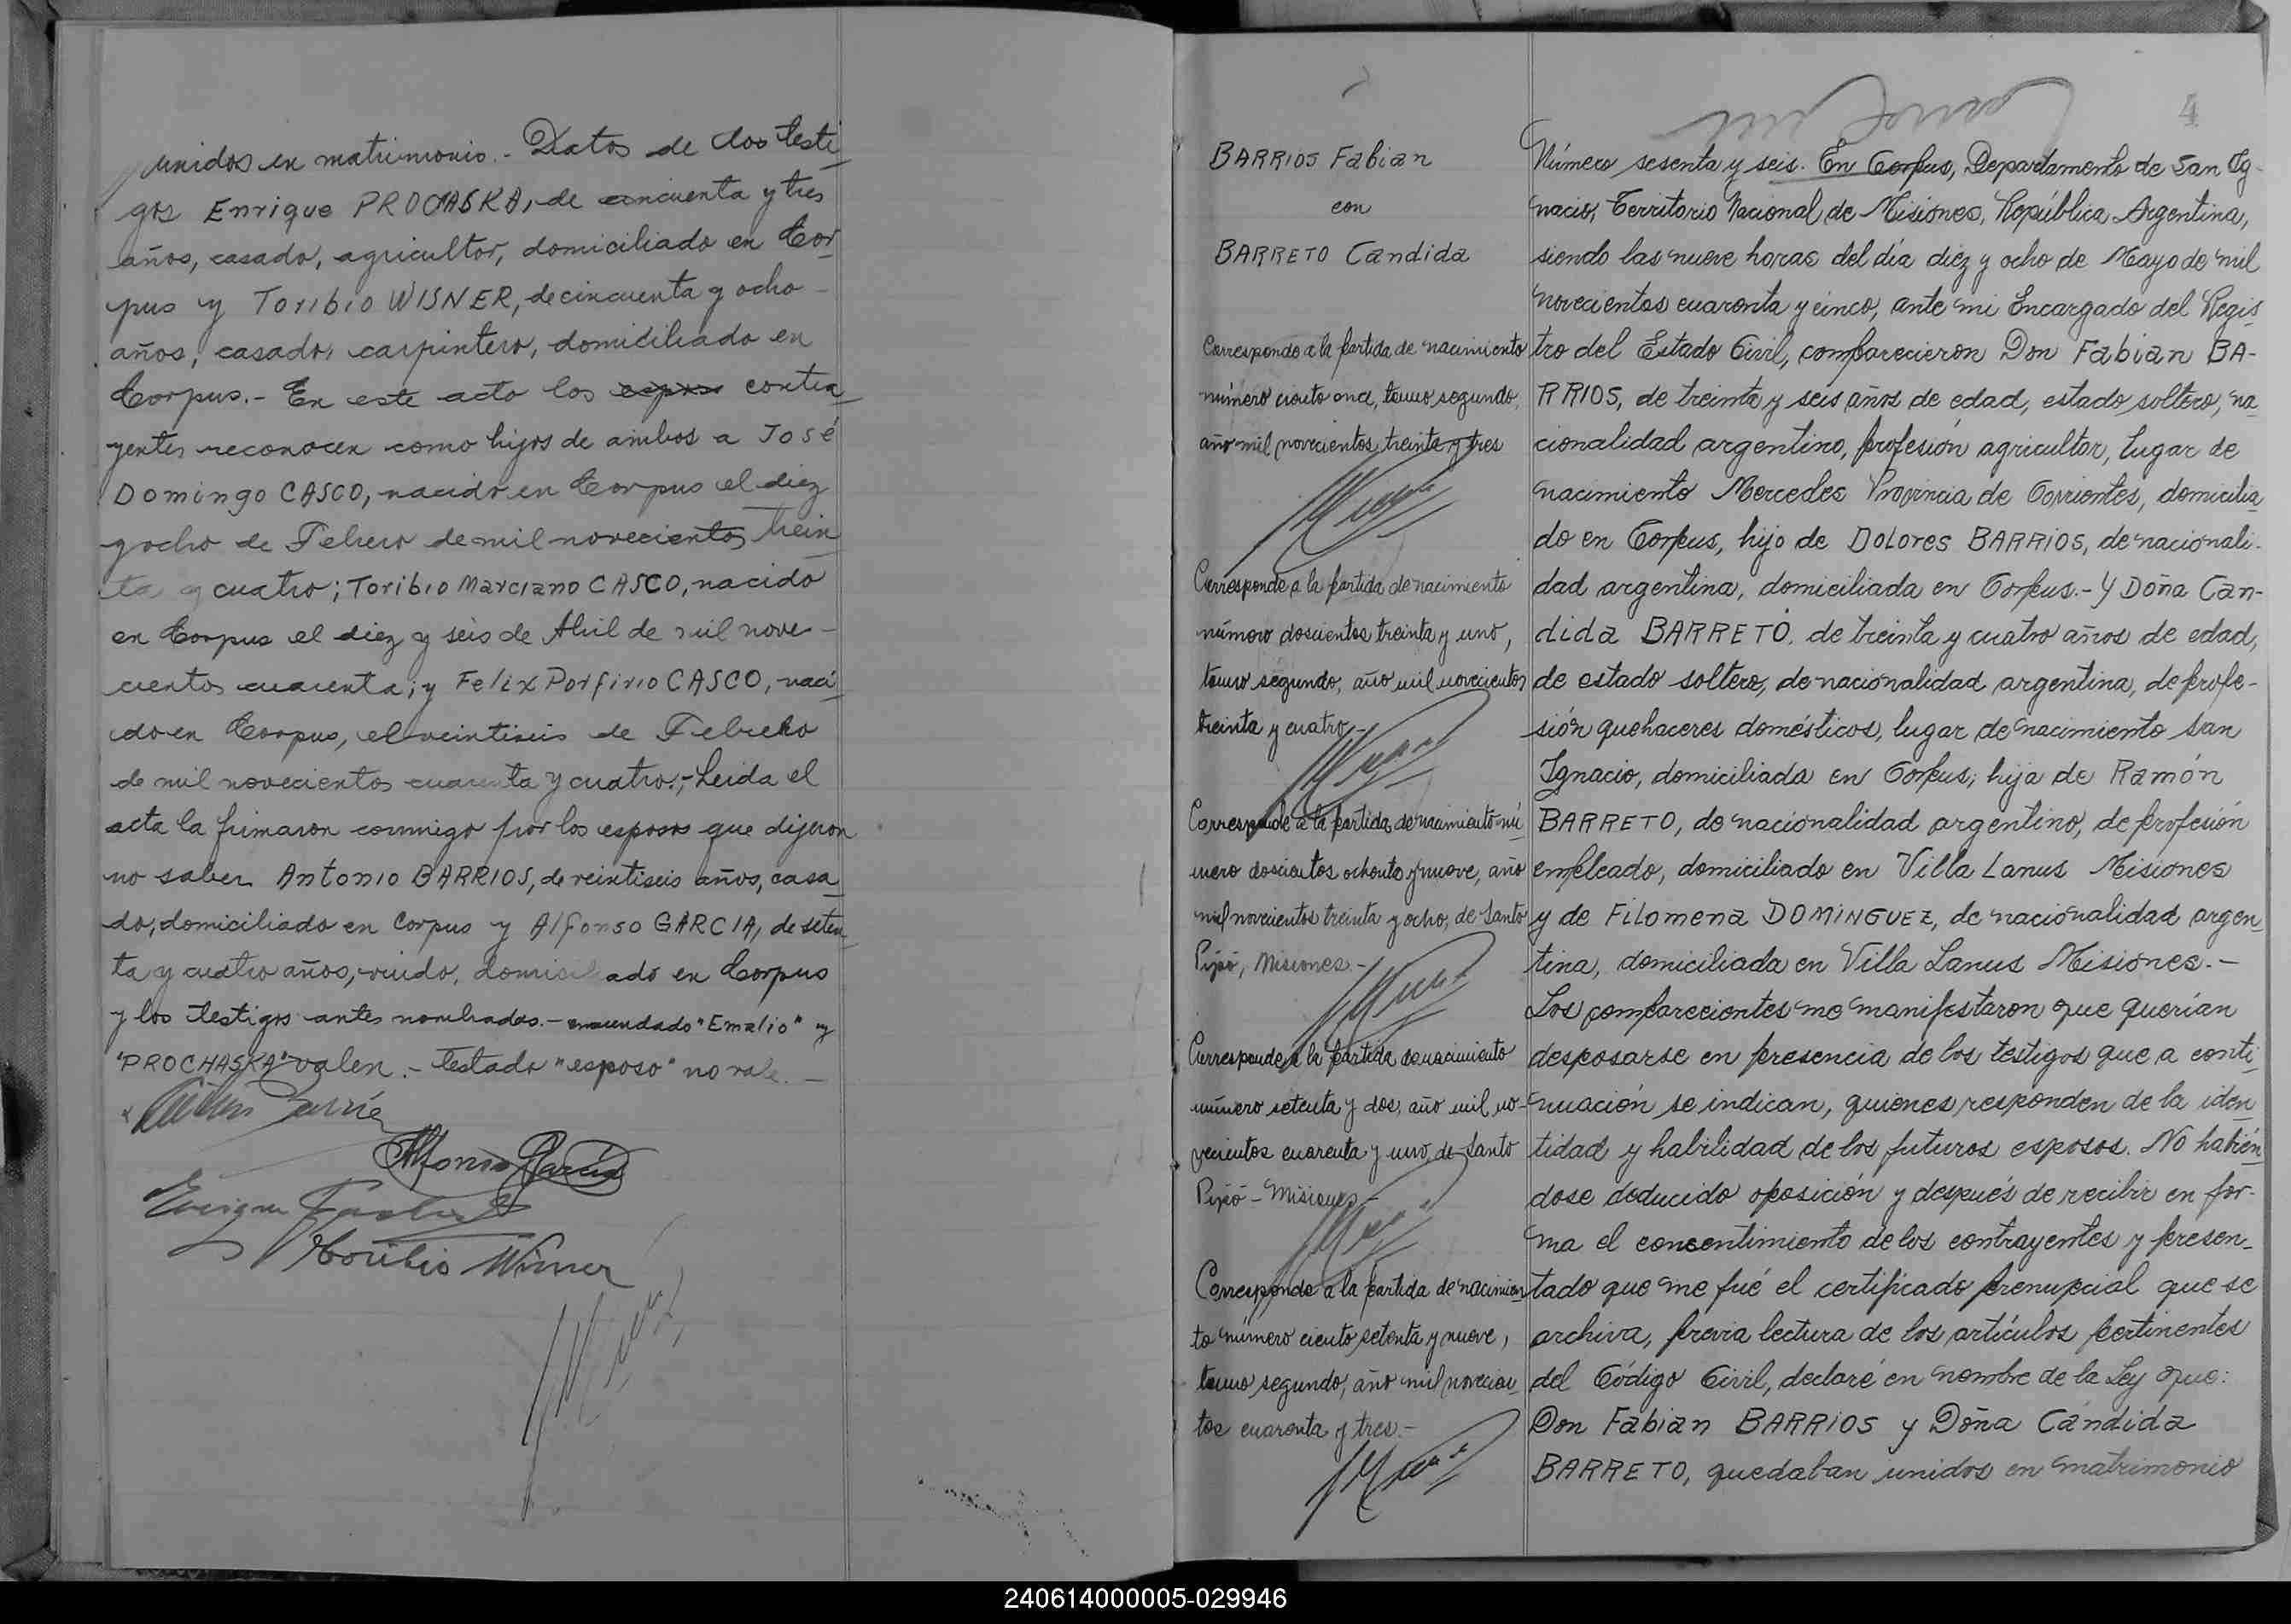 unidos en matrimonio.- Datos de dos testi
gos Enrique PROCHASKA, de cincuenta y tres
años, casado, agricultor, domiciliado en Cor
pus y Toribio WISNER, de cincuenta y ocho
años, casado, carpintero, domiciliado en
Corpus.- En este acto los esposo contra
yentes reconocen como hijos de ambos a José
Domingo CASCO, nacido en Corpus el diez
y ocho de Febrero de mil novecientos trein
ta y cuatro; Toribio Marciano CASCO, nacido
en Corpus el diez y seis de Abril de mil nove-
cientos cuarenta; y Felix Porfirio CASCO, naci
do en Corpus, el veintiseis de Febrero
de mil novecientos cuarenta y cuatro.- Leida el
acta la firmaron conmigo por los esposos que dijeron
no saber Antonio BARRIOS, de veintiseis años, casa
do, domiciliado en Corpus y Alfonso GARCIA, de seten
ta y cuatro años, viudo, domiciliado en Corpus
y los testigos antes nombrados.- enmendado "Emalio" y
"PROCHASKA" valen.- testado "esposo" no vale.-
Alfonso García
Enrique
Toribio Wisner
4
BARRIOS Fabian
con
BARRETO Candida
Corresponde a la partida de nacimiento
número ciento once, tomo segundo,
año mil novecientos treinta y tres
Corresponde a la partida de nacimiento
número doscientos treinta y uno,
tomo segundo, año mil novecientos
treinta y cuatro.-
Corresponde a la partida de nacimiento nú
mero doscientos ochenta y nueve, año
mil novecientos treinta y ocho, de Santo
Pipó, Misiones.-
Corresponde a la partida de nacimiento
número setenta y dos, año mil no-
vecientos cuarenta y uno, de Santo
Pipó - Misiones -
Corresponde a la partida de nacimien
to número ciento setenta y nueve,
tomo segundo, año mil novecien
tos cuarenta y tres.-
Número sesenta y seis. En Corpus, Departamento de San Ig-
nacio, Territorio Nacional de Misiones, República Argentina,
siendo las nueve horas del día diez y ocho de Mayo de mil
novecientos cuarenta y cinco, ante mi Encargado del Regis
tro del Estado Civil, comparecieron Don Fabian BA-
RRIOS, de treinta y seis años de edad, estado soltero, na
cionalidad argentino, profesión agricultor, lugar de
nacimiento Mercedes Provincia de Corrientes, domicilia
do en Corpus, hijo de DOLORES BARRIOS, de nacionali-
dad argentina, domiciliada en Corpus.- Y Doña Can-
dida BARRETO, de treinta y cuatro años de edad,
de estado soltero, de nacionalidad argentina, de profe-
sión quehaceres domésticos, lugar de nacimiento San
Ignacio, domiciliada en Corpus, hija de Ramón
BARRETO, de nacionalidad argentino, de profesión
empleado, domiciliado en Villa Lanus Misiones
y de Filomena DOMINGUEZ, de nacionalidad argen
tina, domiciliada en Villa Lanus Misiones.-
Los comparecientes me manifestaron que querían
desposarse en presencia de los testigos que a conti
nuación se indican, quienes responden de la iden
tidad y habilidad de los futuros esposos. No habién
dose deducido oposición y después de recibir en for-
ma el consentimiento de los contrayentes y presen-
tado que me fué el certificado prenupcial que se
archiva, previa lectura de los artículos pertinentes
del Código Civil, declaré en nombre de la Ley que:
Don Fabian BARRIOS y Doña Cándida
BARRETO, quedaban unidos en matrimonio
240614000005-029946